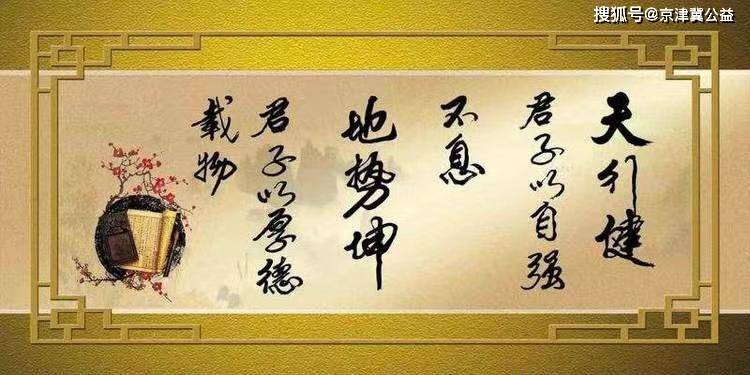 搜狐号@京津冀公益
天行健
君子以自强
不息
地势坤
君子以厚德
载物